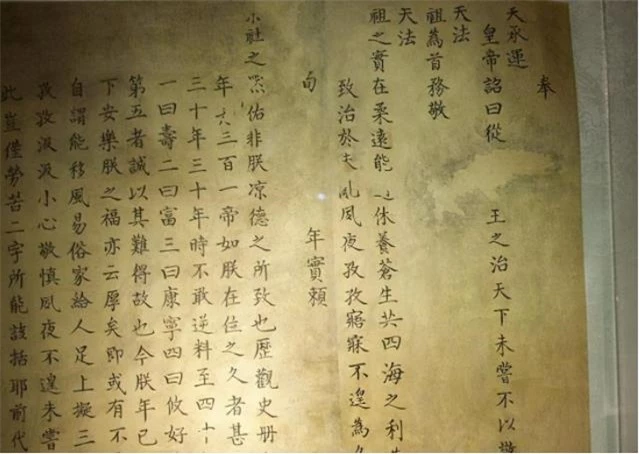 奉
天承運
皇帝詔曰從 王之治天下未嘗不以敬
天法
祖為首務敬
天法
祖之實在柔遠能 休養蒼生共四海之利
致治於 夙夜孜孜寤寐不遑為久
旬 年實賴
社之默佑非朕凉德之所致也歷觀史册
年 三百一帝如朕在位之久者甚
三十年三十年時不敢逆料至四十
一曰壽二曰富三曰康寧四曰攸好
第五者誠以其難得故也今朕年已
下安樂朕之福亦云厚矣即或有不
自謂能移風易俗家給人足上擬三
孜孜汲汲小心敬慎夙夜不遑未嘗
此豈僅勞苦二字所能該括耶前代